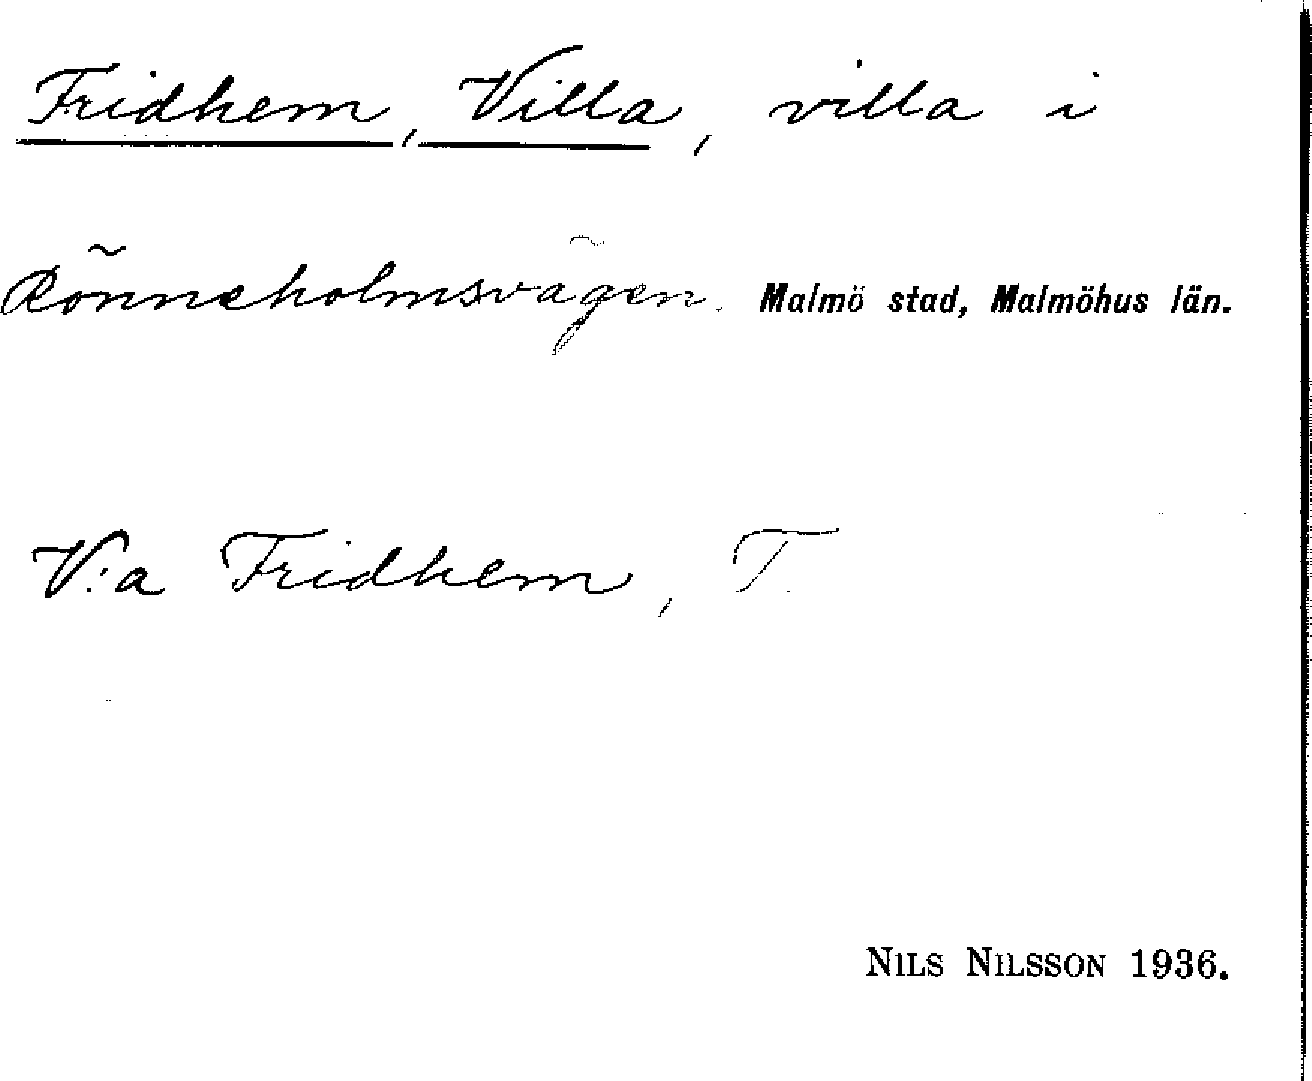 Fridhem, Villa, villa i
Rönneholmsvägen. Malmö stad, Malmöhus län.
V:a Fridhem, T.
NILS NILSSON 1936.